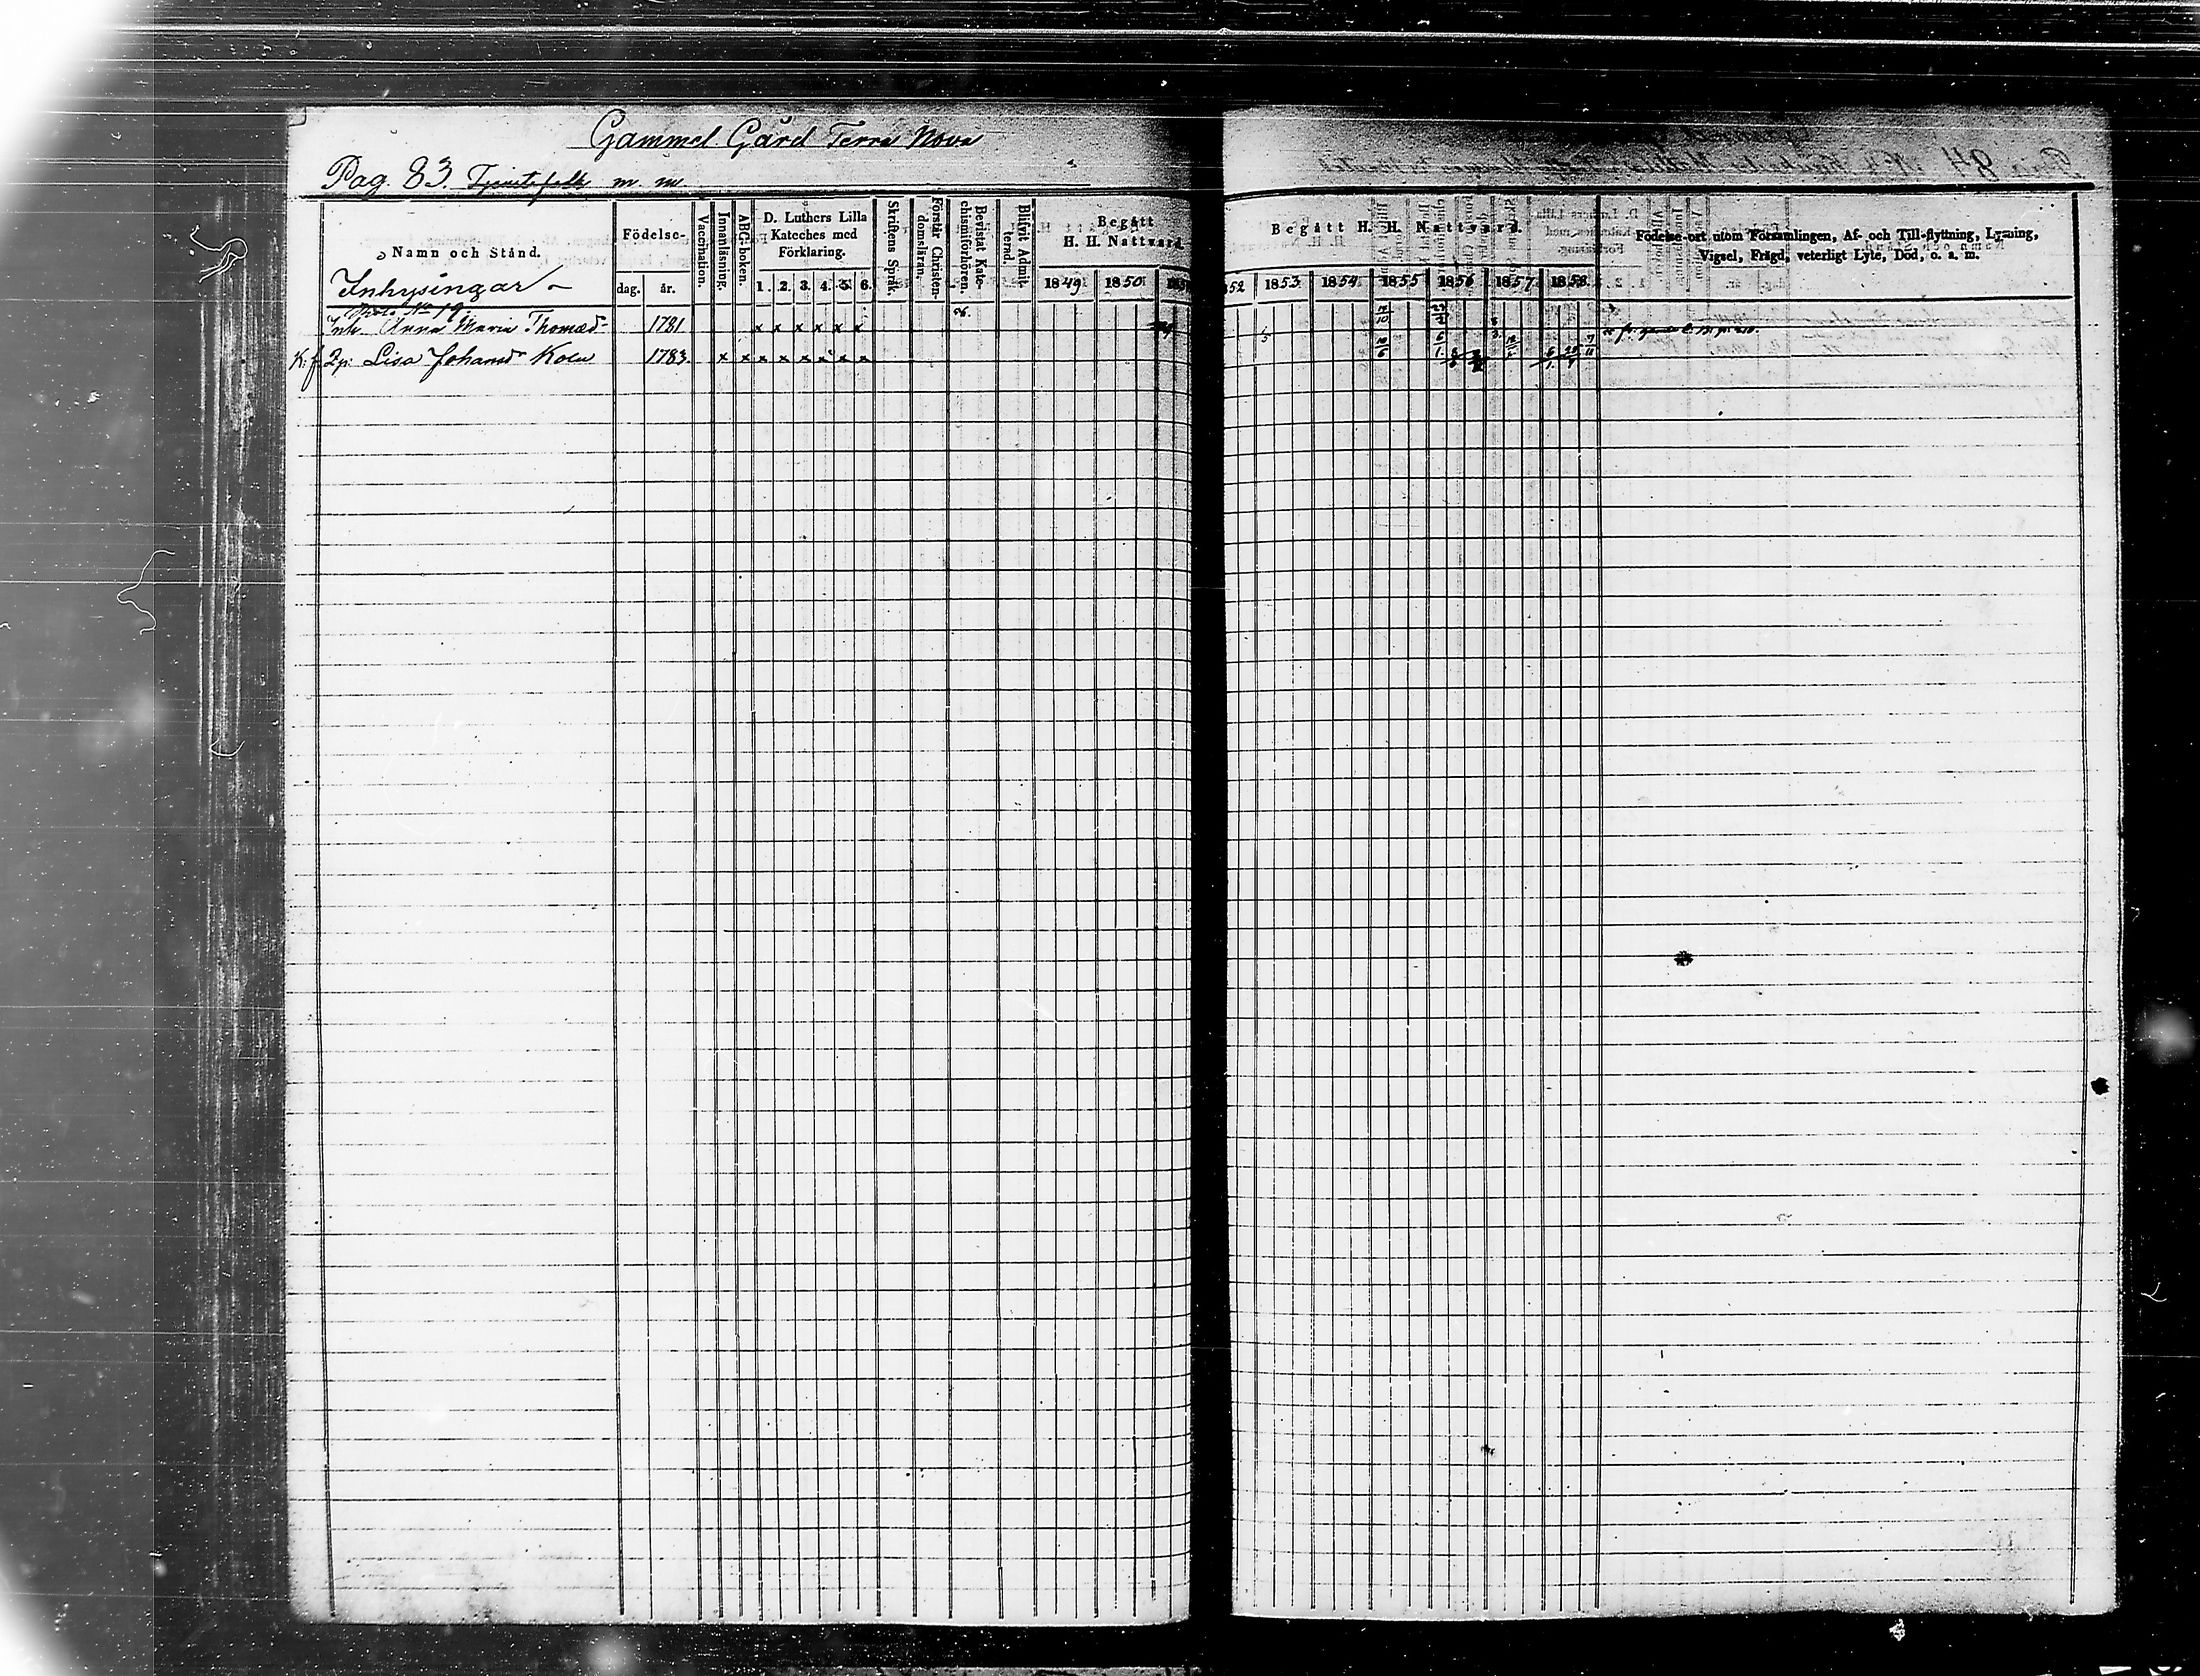 Gammel Gård Terra Nova
Pag. 83. Tjenstefolk m. m.
Namn och Stånd.
Födelse-
dag. år.
Vaccination.
Innanläsning.
ABC-boken.
D. Luthers Lilla
Kateches med
Förklaring.
1. 2. 3. 4. 5. 6.
Skriftens Språk.
Förstår Christen-
domsläran.
Bevistat Kate-
chismiförhören.
Blifvit Admit-
terad.
Begått
H. H. Nattvard.
1849 1850
Begått H. H. Nattvard.
52 1853 1854 1855 1856 1857 1858
Födelse-ort utom Församlingen, Af- och Till-flyttning, Lysning,
Vigsel, Frägd, veterligt Lyte, Död, o. s. m.
Inhysingar
No 19
Inh. Anna Maria Thomæd 1781 x x x x x x
K. f. Lisa Johansd 1783. x x x x x x x x